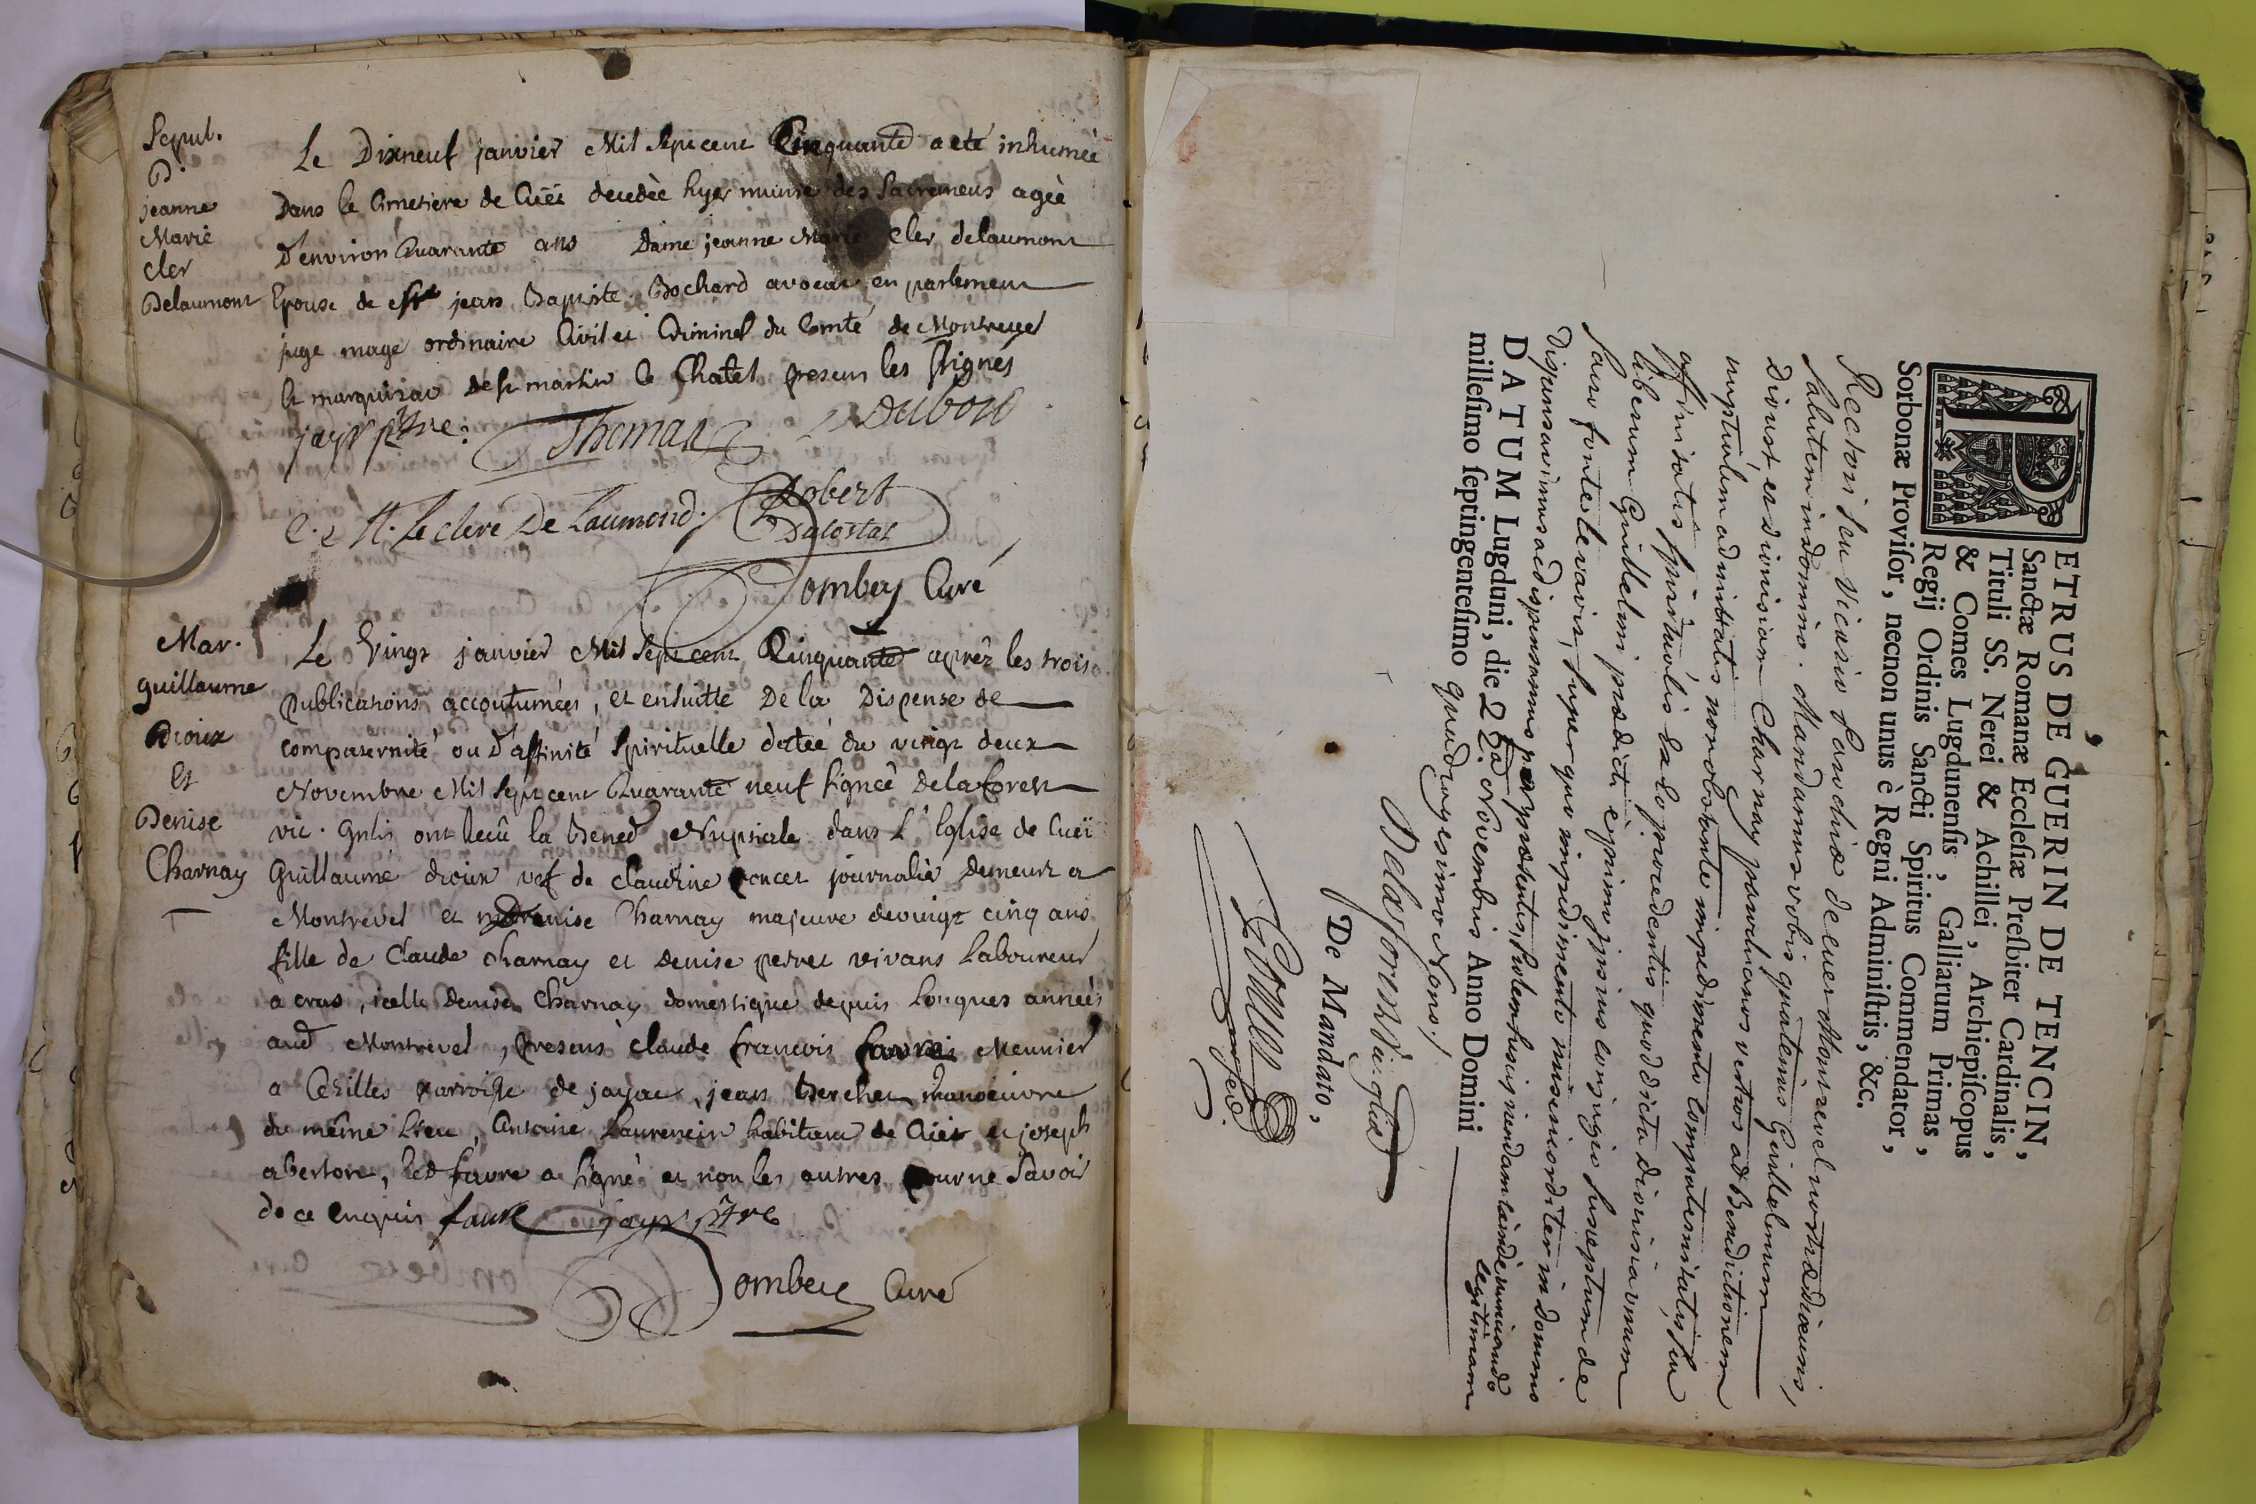 Sepul.
D.
jeanne
Marie
Cler
Delaumont
Le Dixneuf janvier Mil Sept cent Cinquante a eté inhumée
Dans le Cimetiere de Cuët decedée hyer munie des Sacremens agée
D'environ Quarante ans Dame jeanne Marie Cler delaumont
Epouse de Mre jean Baptiste Bochard avocat en parlement
juge mage ordinaire Civil et Criminel du Comté de Montrevel
le marquisac de st martin le Chatel presens les Signés
jayr ptre. Thomas Dubord
Leclerc De Laumond. Robert
Dalostat
Dombey Curé
Mar.
guillaume
Droux
Et
Denise
Charnay
Le Vingt janvier Mil Sept cent Cinquante aprêz les trois
publications accoutumées, et ensuitte De la Dispense de
compaternité ou D'affinité Spirituelle dattée du vingt deux
Novembre Mil Sept cent Quarante neuf Signée Delaforest
vic. gnlis ont Recû la Bened Nuptiale dans L'Eglise de Cuët
Guillaume droux vef de Claudine poncet journalié Demeurt a
Montrevel et Denise Charnay majeure de vingt cinq ans
fille de Claude Charnay et Denise perret vivans Laboureur
a cras, icelle Denise Charnay domestique depuis Longues années
aud Montrevel, presens claude francois favre Meunier
a Cezilles parroisse de jayac, jean Berchet manoeuvre
du même Lieu, Antoine Laurencin habitant de Cuët et joseph
abertore, led favre a signé et non les autres pour ne Savoir
de ce Enquis favre jayr ptre
Dombey Curé
PETRUS DE GUERIN DE TENCIN,
Sanctæ Romanæ Ecclesiæ Presbiter Cardinalis,
Tituli SS. Nerei & Achillei, Archiepiscopus
& Comes Lugdunensis, Galliarum Primas,
Regij Ordinis Sancti Spiritus Commendator,
Sorbonæ Provisor, necnon unus è Regni Administris, &c.
Rectori seu Vicario Parochiæ de Cuet Montrevel nostræ diœcesis,
Salutem in domino. Mandamus vobis quatenus Guillelmum
Drous, et Dionisiam Charnay parochianos vestros ad Benedictionem
nuptialem admittatis non obstante impedimento compaternitatis, seu
affinitatis spiritualis ex eo procedentis quod dicta dionisia unum
liberum Guillelmi prædicti è primo ipsius conjugio susceptum de
sacro fonte levavit, super quo impedimento misericorditer in domino
dispensavimus ac dispensamus per præsentes, prolem suscipiendam inde nunciando
legitimam
DATUM Lugduni, die 22a Novembris Anno Domini
millesimo septingentesimo quadragesimo Nono.
Delaforest v. g.lis
De Mandato,